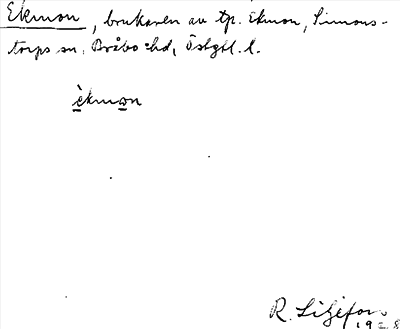 Ekmon, brukaren av tp. Ekmon, Simons-
torps sn, Bråbo hd, Östgtl. l.
èkmon
R. Liljefors
1928